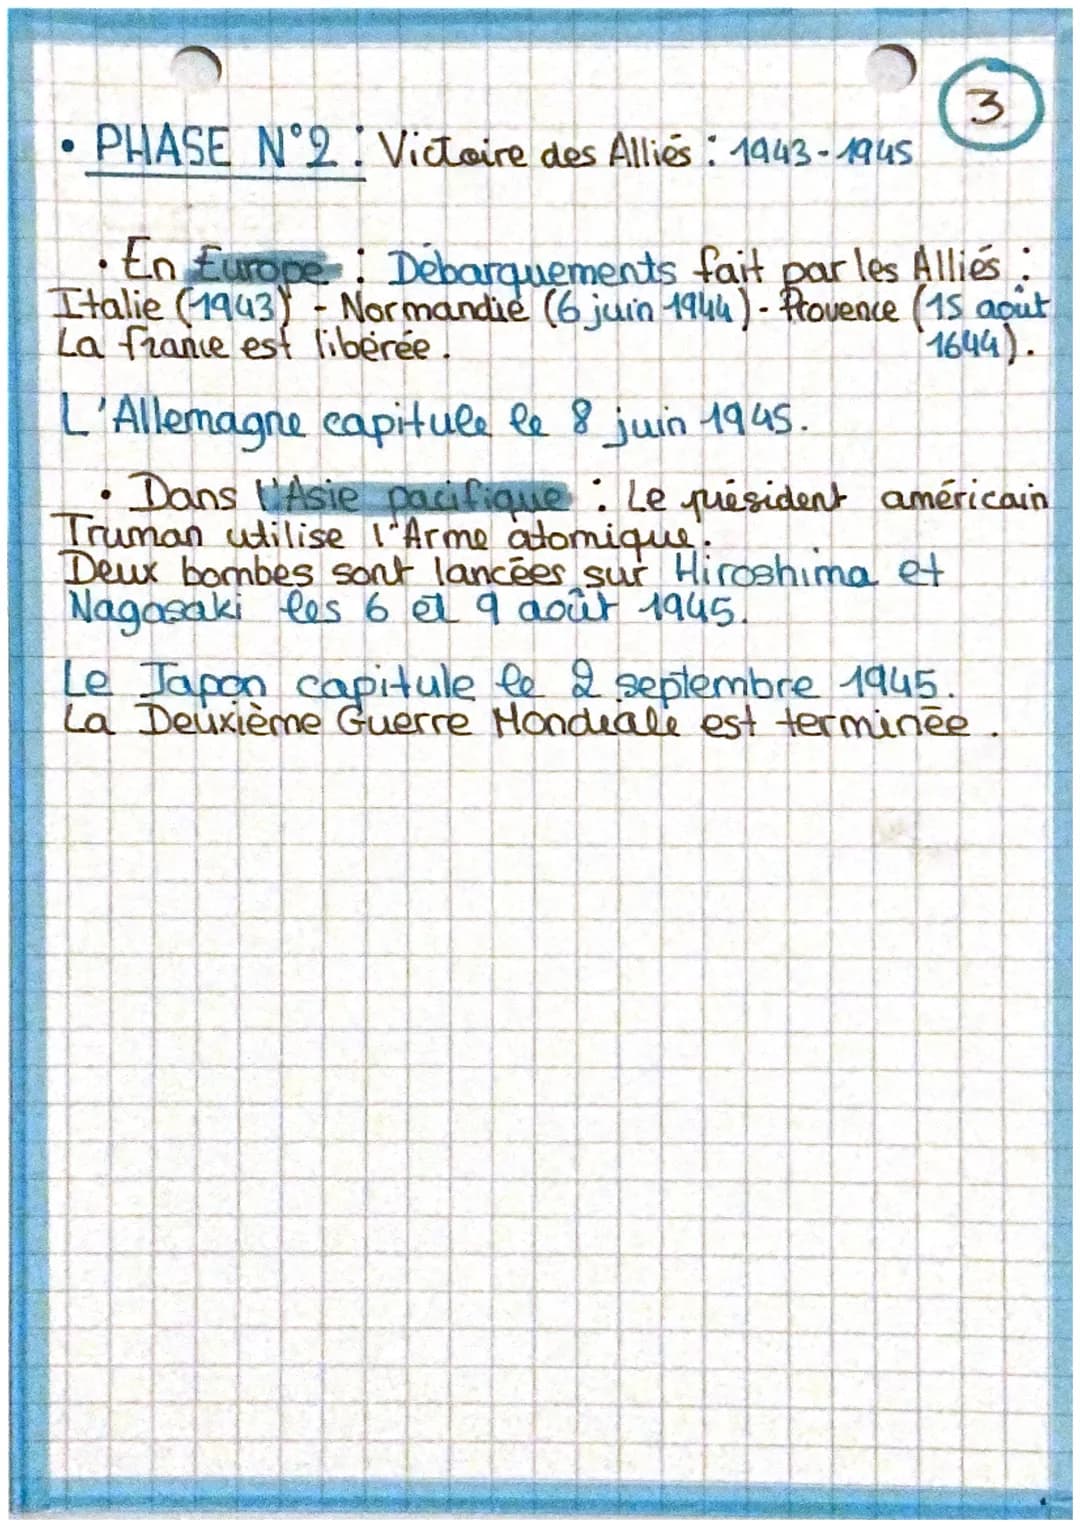 3
• PHASE N°2 : Victoire des Alliés : 1943-1945
• En Europe : Débarquements fait par les Alliés :
Italie (1943) - Normandie (6 juin 1944) - Provence (15 août
La france est libérée. 1644).
L'Allemagne capitule le 8 juin 1945.
• Dans l'Asie pacifique : Le président américain
Truman utilise l'Arme atomique.
Deux bombes sont lancées sur Hiroshima et
Nagasaki les 6 et 9 août 1945.
Le Japon capitule le 2 septembre 1945.
La Deuxième Guerre Mondiale est terminée.